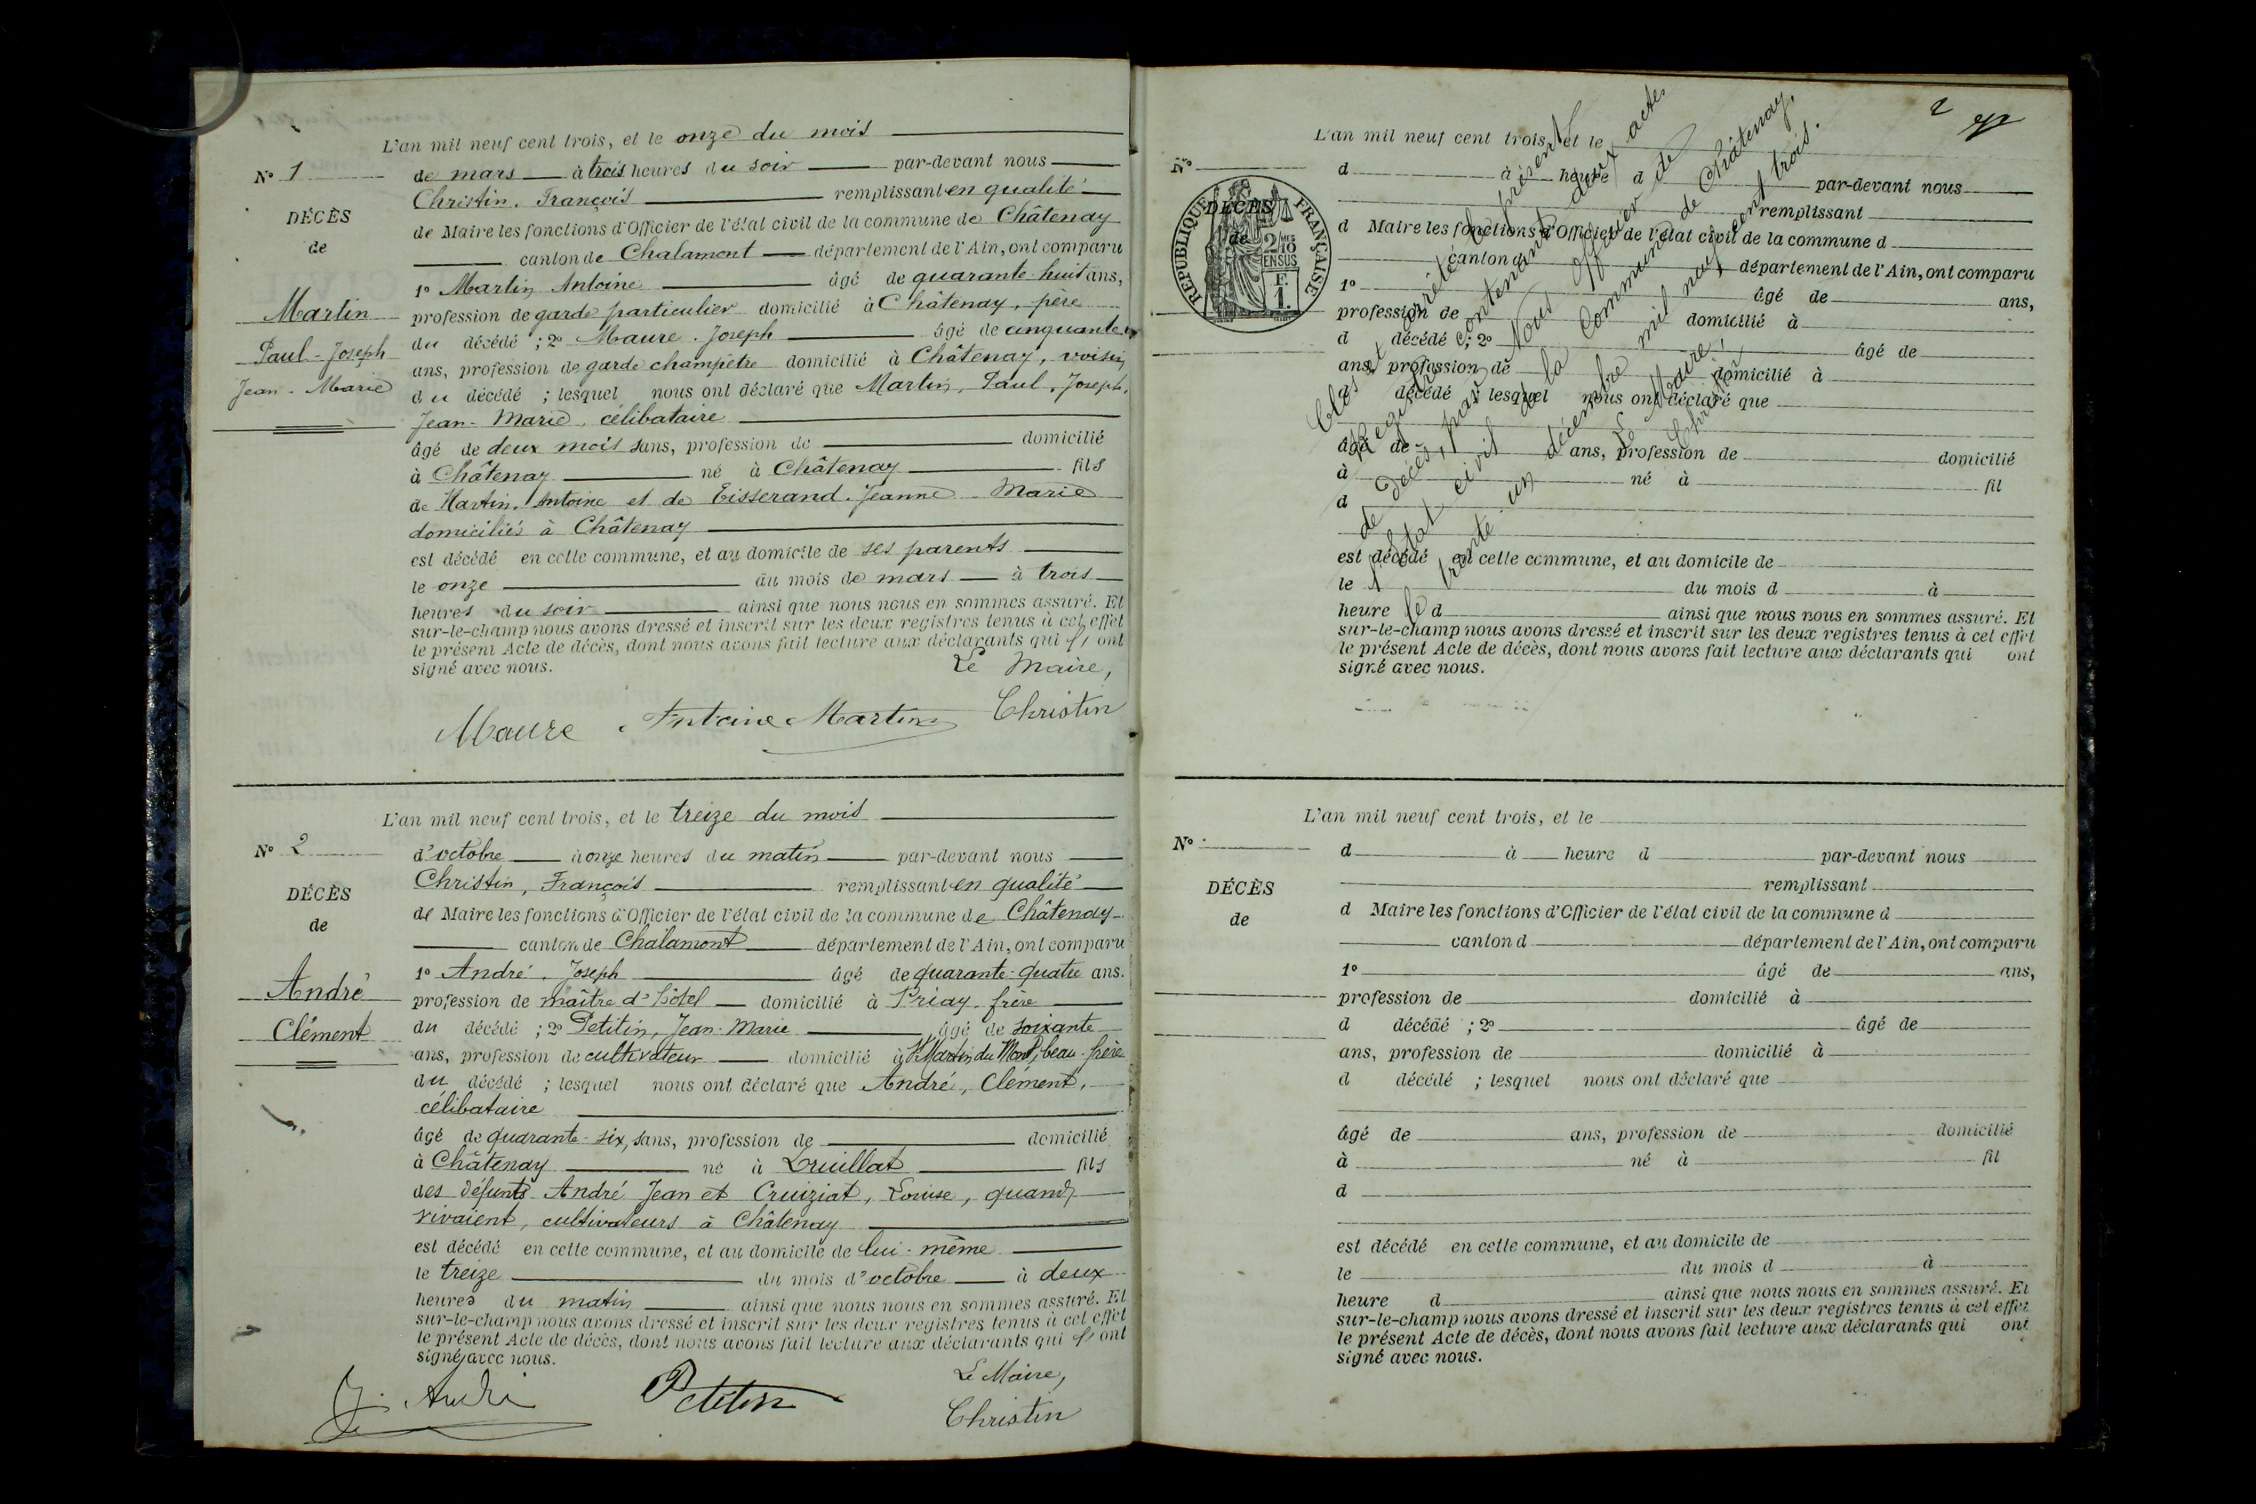 L'an mil neuf cent trois, et le onze du mois
N° 1
de mars à trois heures du soir par-devant nous
Christin, François remplissant en qualité
DÉCÈS
de Maire les fonctions d'Officier de l'état civil de la commune de Châtenay
de
canton de Chalamont département de l'Ain, ont comparu
1° Martin Antoine âgé de quarante-huit ans,
Martin
profession de garde particulier domicilié à Châtenay, père
du décédé ; 2° Maure, Joseph âgé de cinquante
Paul-Joseph
ans, profession de garde champêtre domicilié à Châtenay, voisin
Jean-Marie
du décédé ; lesquel nous ont déclaré que Martin, Paul, Joseph,
Jean-Marie, célibataire
âgé de deux mois sans, profession de domicilié
à Châtenay né à Châtenay fils
de Martin, Antoine et de Tisserand, Jeanne Marie
domiciliés à Châtenay
est décédé en cette commune, et au domicile de ses parents
le onze du mois de mars à trois
heures du soir ainsi que nous nous en sommes assuré. Et
sur-le-champ nous avons dressé et inscrit sur les deux registres tenus à cet effet
le présent Acte de décès, dont nous avons fait lecture aux déclarants qui ont
signé avec nous.
Le Maire,
Maure Antoine Martin Christin
L'an mil neuf cent trois, et le treize du mois
N° 2
d'octobre à onze heures du matin par-devant nous
Christin, François remplissant en qualité
DÉCÈS
de Maire les fonctions d'Officier de l'état civil de la commune de Châtenay
de
canton de Chalamont département de l'Ain, ont comparu
1° André, Joseph âgé de quarante-quatre ans.
André
profession de maître d'hôtel domicilié à Priay, frère
Clément
du décédé ; 2° Petitin, Jean-Marie âgé de soixante
ans, profession de cultivateur domicilié à St Martin du Mont, beau-frère
du décédé ; lesquel nous ont déclaré que André, Clément,
célibataire
âgé de quarante-six, sans, profession de domicilié
à Châtenay né à Druillat fils
des défunts André Jean et Cruiziat, Louise, quand
vivaient, cultivateurs à Châtenay
est décédé en cette commune, et au domicile de lui-même
le treize du mois d'octobre à deux
heures du matin ainsi que nous nous en sommes assuré. Et
sur-le-champ nous avons dressé et inscrit sur les deux registres tenus à cet effet
le présent Acte de décès, dont nous avons fait lecture aux déclarants qui ont
signé avec nous.
Le Maire,
J. André Petitin Christin
2
L'an mil neuf cent trois, et le
N°
d à heure d par-devant nous
DÉCÈS
remplissant
de
d Maire les fonctions d'Officier de l'état civil de la commune d
RÉPUBLIQUE FRANÇAISE
2/10 MES
EN SUS
F.
1.
canton d département de l'Ain, ont comparu
1° âgé de ans,
profession de domicilié à
d décédé ; 2° âgé de
ans, profession de domicilié à
d décédé ; lesquel nous ont déclaré que
âgé de ans, profession de domicilié
à né à fil
d
est décédé en cette commune, et au domicile de
le du mois d à
heure d ainsi que nous nous en sommes assuré. Et
sur-le-champ nous avons dressé et inscrit sur les deux registres tenus à cet effet
le présent Acte de décès, dont nous avons fait lecture aux déclarants qui ont
signé avec nous.
Clos et arrêté le présent
Registre contenant deux actes
de décès, par Nous Officier de
l'état civil de la Commune de Châtenay,
le trente-un décembre mil neuf cent trois.
Le Maire,
Christin
L'an mil neuf cent trois, et le
N°
d à heure d par-devant nous
remplissant
DÉCÈS
d Maire les fonctions d'Officier de l'état civil de la commune d
de
canton d département de l'Ain, ont comparu
1° âgé de ans,
profession de domicilié à
d décédé ; 2° âgé de
ans, profession de domicilié à
d décédé ; lesquel nous ont déclaré que
âgé de ans, profession de domicilié
à né à fil
d
est décédé en cette commune, et au domicile de
le du mois d à
heure d ainsi que nous nous en sommes assuré. Et
sur-le-champ nous avons dressé et inscrit sur les deux registres tenus à cet effet
le présent Acte de décès, dont nous avons fait lecture aux déclarants qui ont
signé avec nous.